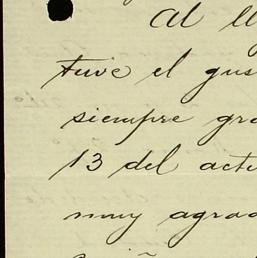 Al ll
tuve el gus
siempre gra
13 del actu
muy agrad